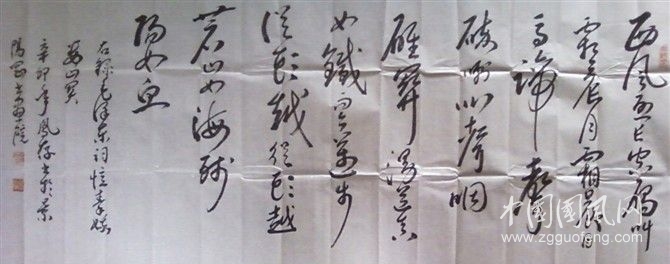 西风烈长空雁叫
霜晨月霜晨月
马蹄声
碎喇叭声咽
雄關漫道真
如鐵而今邁步
從头越從头越
苍山如海残
阳如血
右錄毛泽东词忆秦娥
娄山关
辛卯年凤存书於景
中国国风网
www.zgguofeng.com